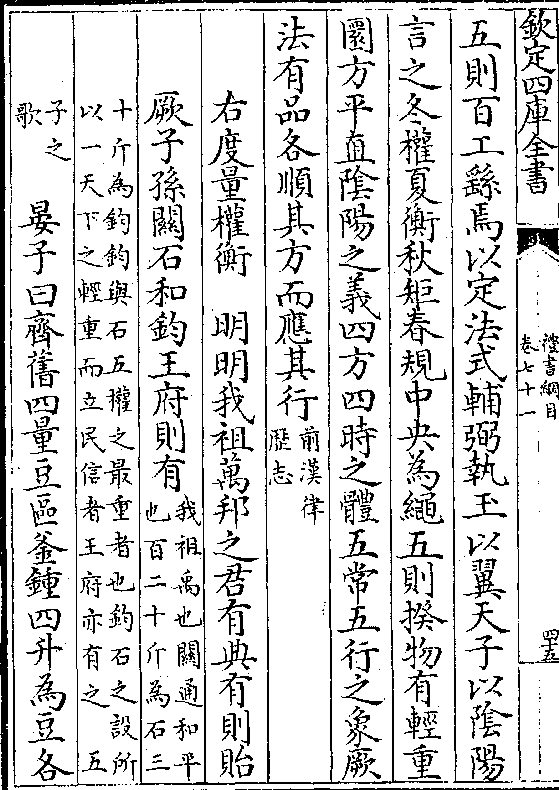 欽定四庫全書
禮書綱目
卷七十一
四五
五則百工繇焉以定法式輔弼執玉以翼天子以陰陽
言之冬權夏衡秋矩春規中央為繩五則揆物有輕重
圜方平直陰陽之義四方四時之體五常五行之象厥
法有品各順其方而應其行前漢律
歴志
右度量權衡　明明我祖萬邦之君有典有則貽
厥子孫關石和鈞王府則有我祖禹也關通和平
也百二十斤為石三
十斤為鈞鈞與石五權之最重者也鈞石之設所
以一天下之輕重而立民信者王府亦有之　五
子之
歌　晏子曰齊舊四量豆區釜鍾四升為豆各